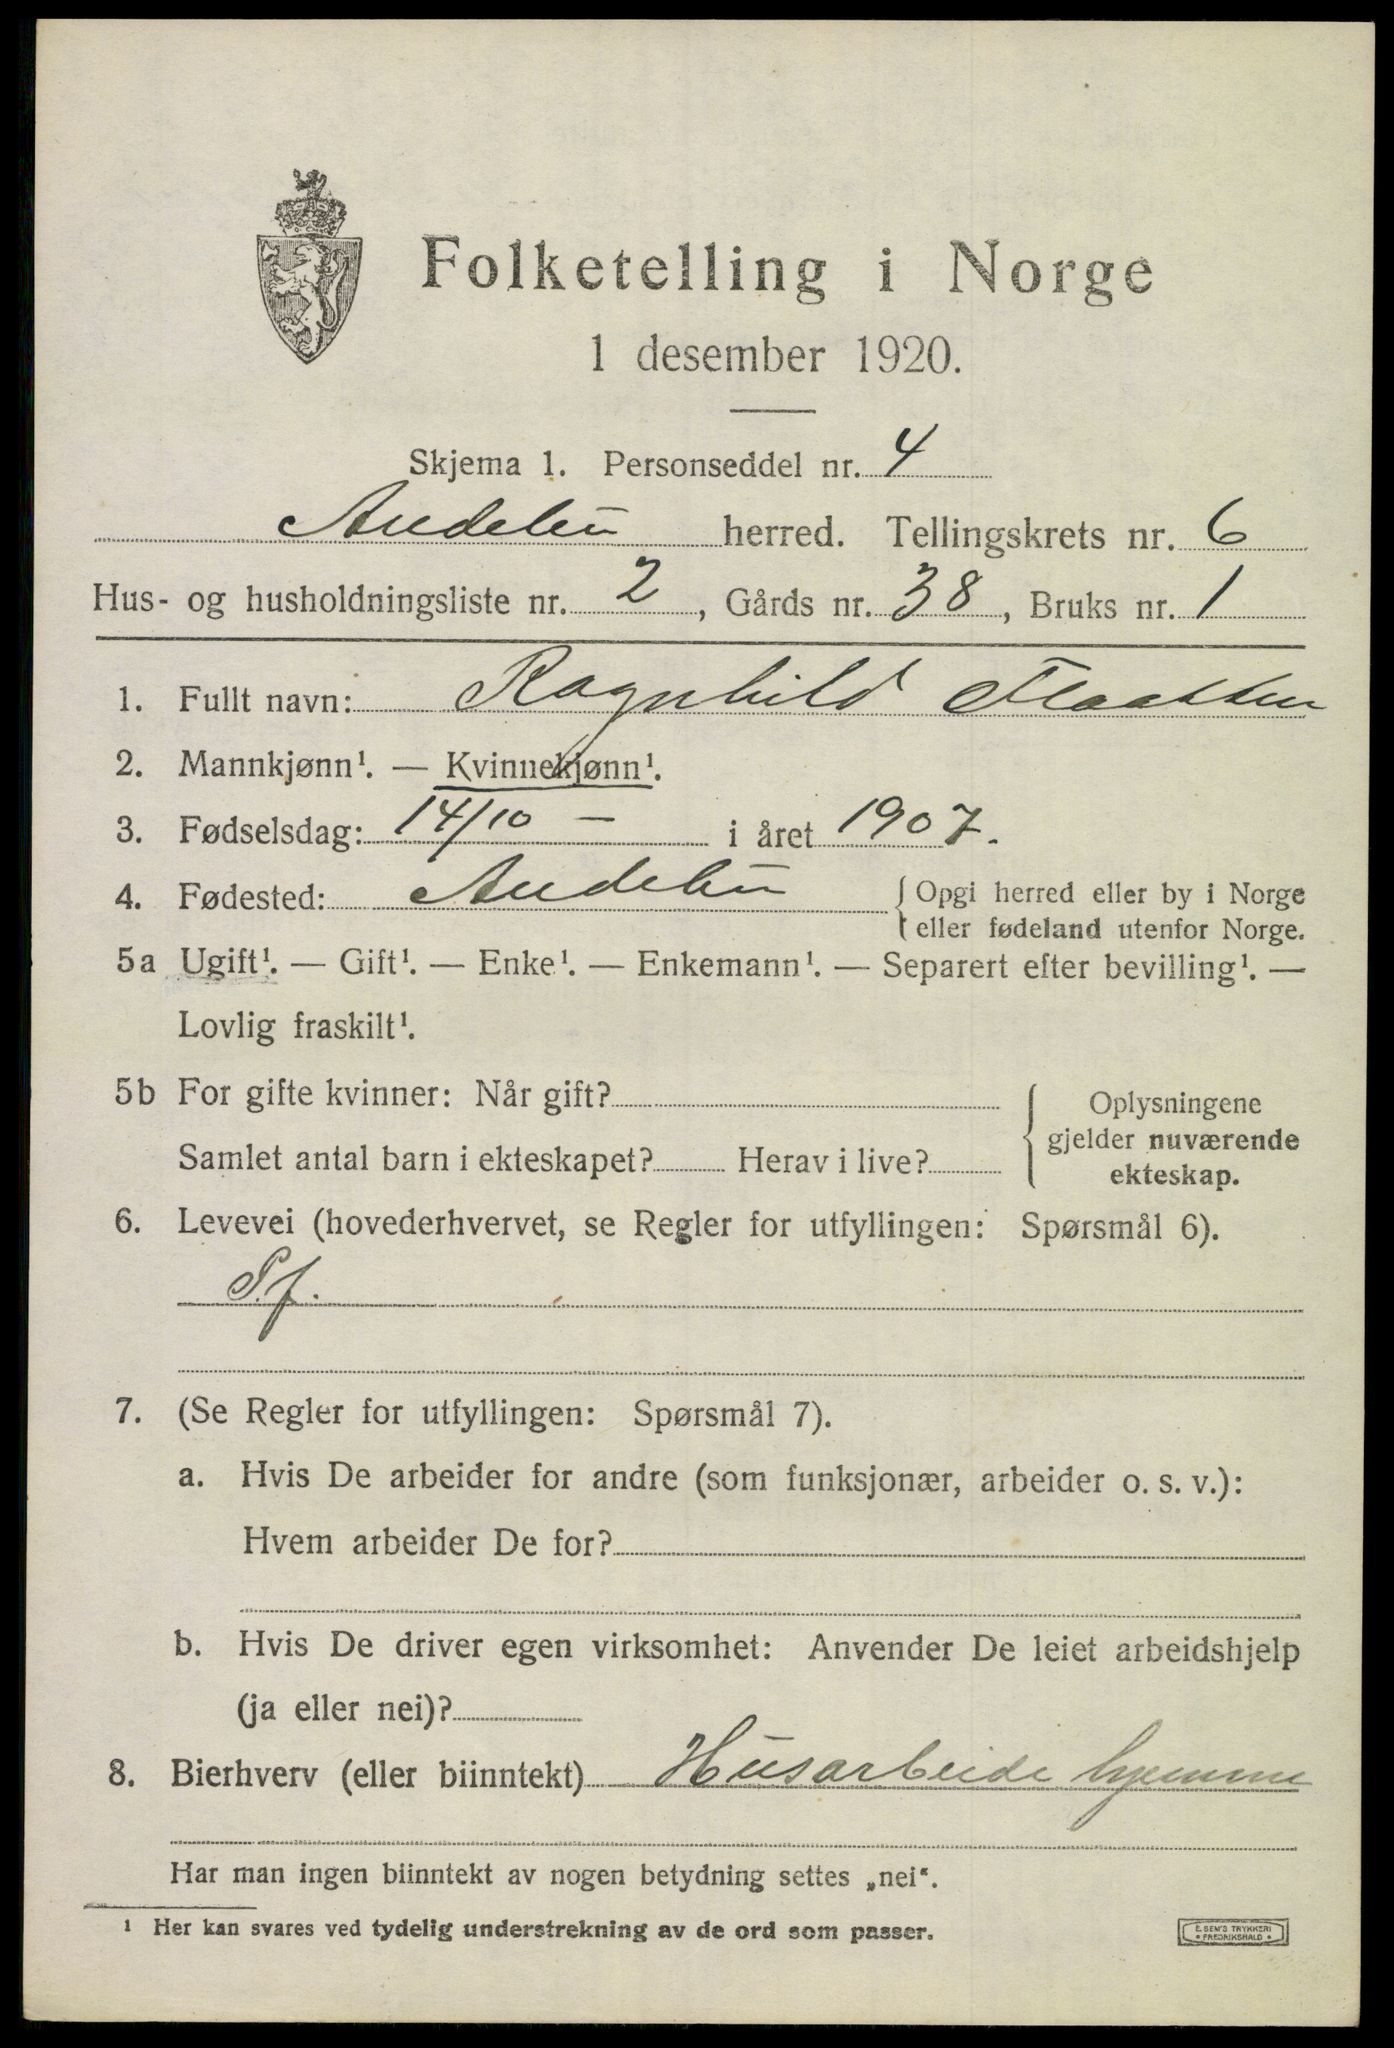 Folketelling i Norge
1 desember 1920.
Skjema 1. Personseddel nr. 4
Andebu herred. Tellingskrets nr. 6
Hus- og husholdningsliste nr. 2, Gårds nr. 38, Bruks nr. 1
1. Fullt navn: Ragnhild Flaatten
2. Mannkjønn¹. — Kvinnekjønn¹.
3. Fødselsdag: 14/10 — i året 1907.
4. Fødested: Andebu { Opgi herred eller by i Norge
eller fødeland utenfor Norge.
5a Ugift¹. — Gift¹. — Enke¹. — Enkemann¹. — Separert efter bevilling¹. —
Lovlig fraskilt¹.
5b For gifte kvinner: Når gift?
Samlet antal barn i ekteskapet? Herav i live?
{ Oplysningene
gjelder nuværende
ekteskap.
6. Levevei (hovederhvervet, se Regler for utfyllingen: Spørsmål 6).
S.f.
7. (Se Regler for utfyllingen: Spørsmål 7).
a. Hvis De arbeider for andre (som funksjonær, arbeider o. s. v.):
Hvem arbeider De for?
b. Hvis De driver egen virksomhet: Anvender De leiet arbeidshjelp
(ja eller nei)?
8. Bierhverv (eller biinntekt) Husarbeide hjemme
Har man ingen biinntekt av nogen betydning settes „nei“.
¹ Her kan svares ved tydelig understrekning av de ord som passer.
E. SEM'S TRYKKERI
• FREDRIKSHALD •